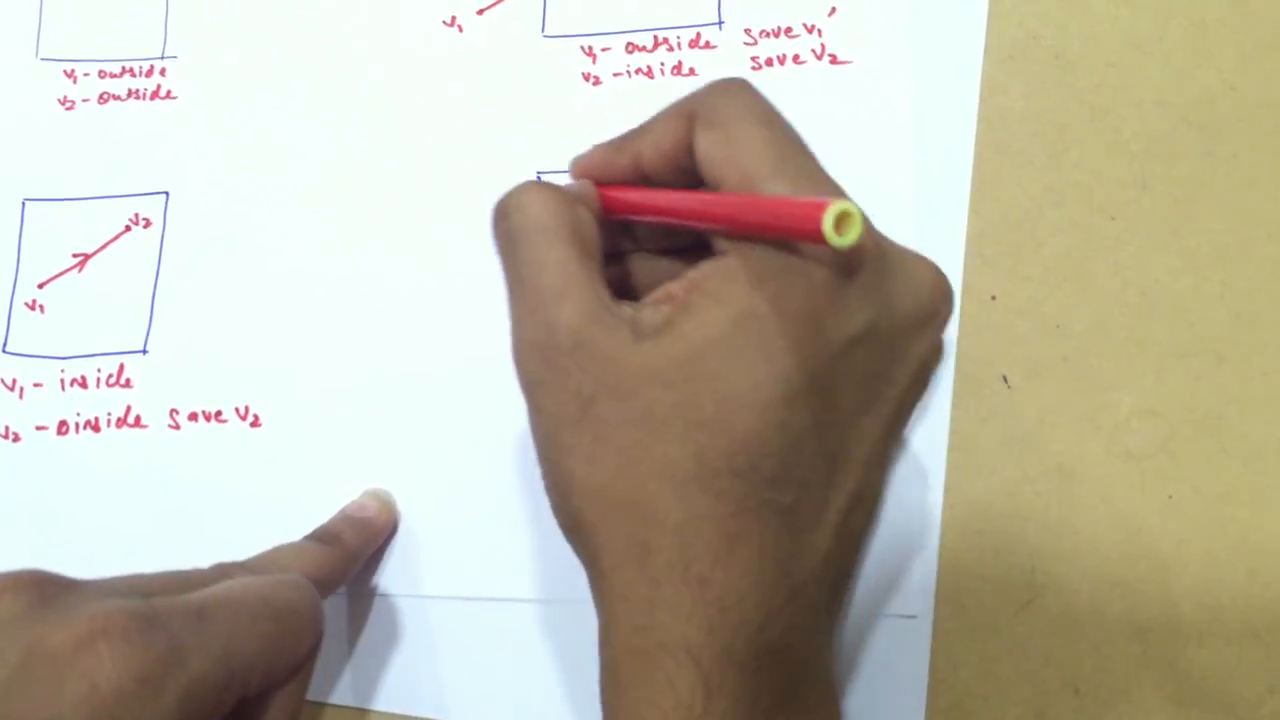 V1 - outside
V2 - outside
V1
V1 - outside save V1'
V2 - inside save V2
V2
V1
V1 - inside
V2 - oinside save V2